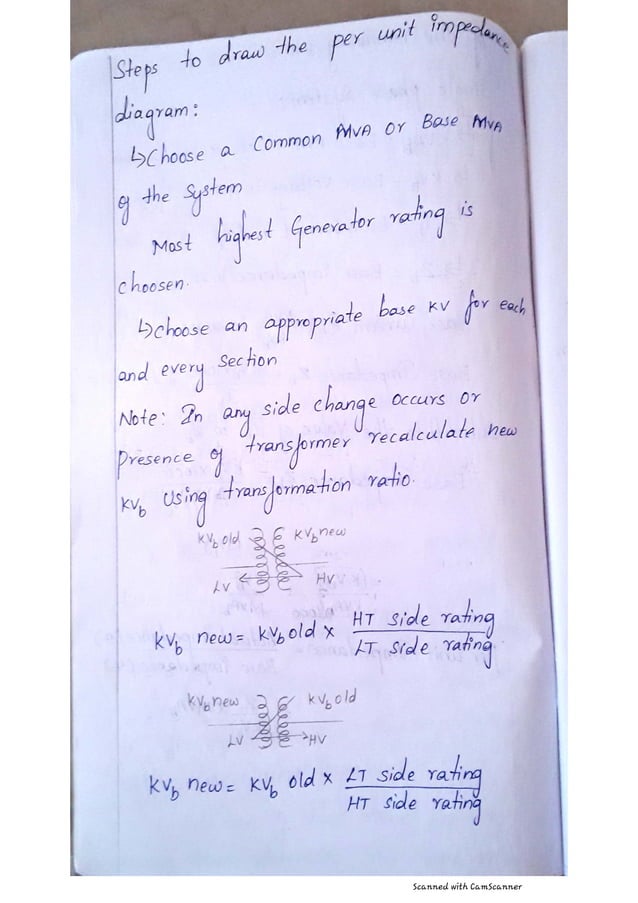 Steps to draw the per unit impedance
diagram:
↳Choose a Common MVA or Base MVA
of the System
Most highest Generator rating is
choosen.
↳choose an appropriate base KV for each
and every section
Note: In any side change occurs or
presence of transformer recalculate new
KVb using transformation ratio.
KVb old KVb new
LV HV
KVb new = KVb old x HT side rating
LT side rating
KVb new KVb old
LV HV
KVb new = KVb old x LT side rating
HT side rating
Scanned with CamScanner